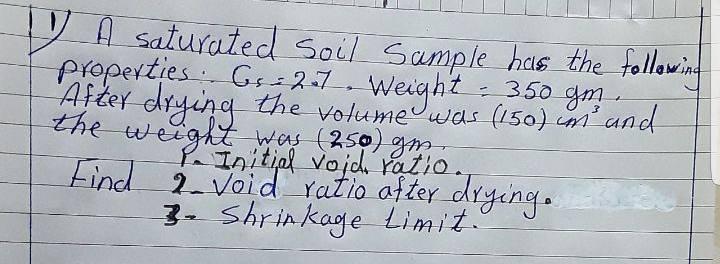 1) A saturated soil sample has the following
properties: Gs = 2.7. Weight = 350 gm.
After drying the volume was (150) cm³ and
the weight was (250) gm.
1- Initial void ratio.
Find 2- Void ratio after drying.
3- Shrinkage Limit.